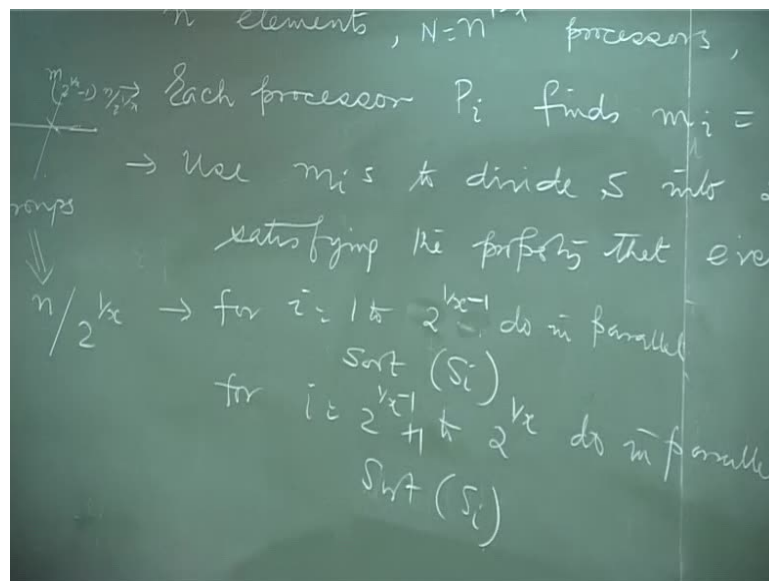 n elements, N = n^{1-x} processors,
(2^{1/x}-1) n/2^{1/x} → Each processor P_i finds m_i =
→ Use m_i s to divide S into
roups
satisfying the property that eve
⇓
n/2^{1/x} → for i = 1 to 2^{1/x-1} do in parallel
Sort (S_i)
for i = 2^{1/x-1}+1 to 2^{1/x} do in paralle
Sort (S_i)